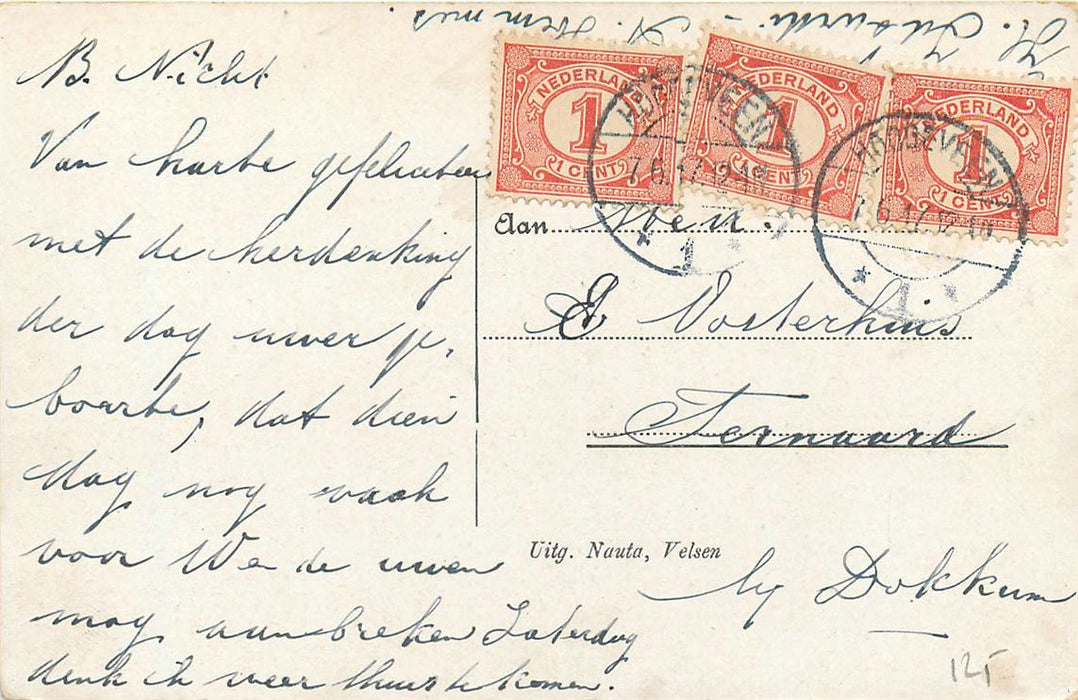 B. Nicht
Van harte gefeliciteerd
met de herdenking
der dag uwer ge-
boorte, dat dien
dag nog vaak
voor U en de uwen
mag aanbreken Zaterdag
denk ik weer thuis te komen.
NEDERLAND
1
1 CENT
NEDERLAND
1
1 CENT
NEDERLAND
1
1 CENT
HOOGEVEEN
7.6.17.12
1
HOOGEVEEN
7.6.17.12
1
Aan
E Oosterhuis
Ternaard
Uitg. Nauta, Velsen
by Dokkum
125